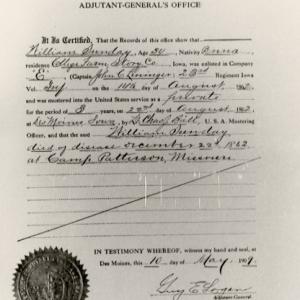 ADJUTANT-GENERAL'S OFFICE
It is Certified, That the Records of this office show that
William Sunday, age 34, Nativity Penna
residence Story Co, Iowa, was enlisted in Company
"E", (Captain John C. 23rd Regiment Iowa
Vol Inf on the 14th day of August 1862
and was mustered into the United States service as a private
for the period of 3 years on 22nd day August 1862
at Des Moines Iowa, by Lt Chas Ball, U. S. A. Mustering
Officer, and that said William Sunday
died of disease December 22nd 1862
at Camp Patterson, Missouri
IN TESTIMONY WHEREOF, witness my hand and seal, at
Des Moines, this 10 day of May 1909.
Guy E. Logan
Adjutant General